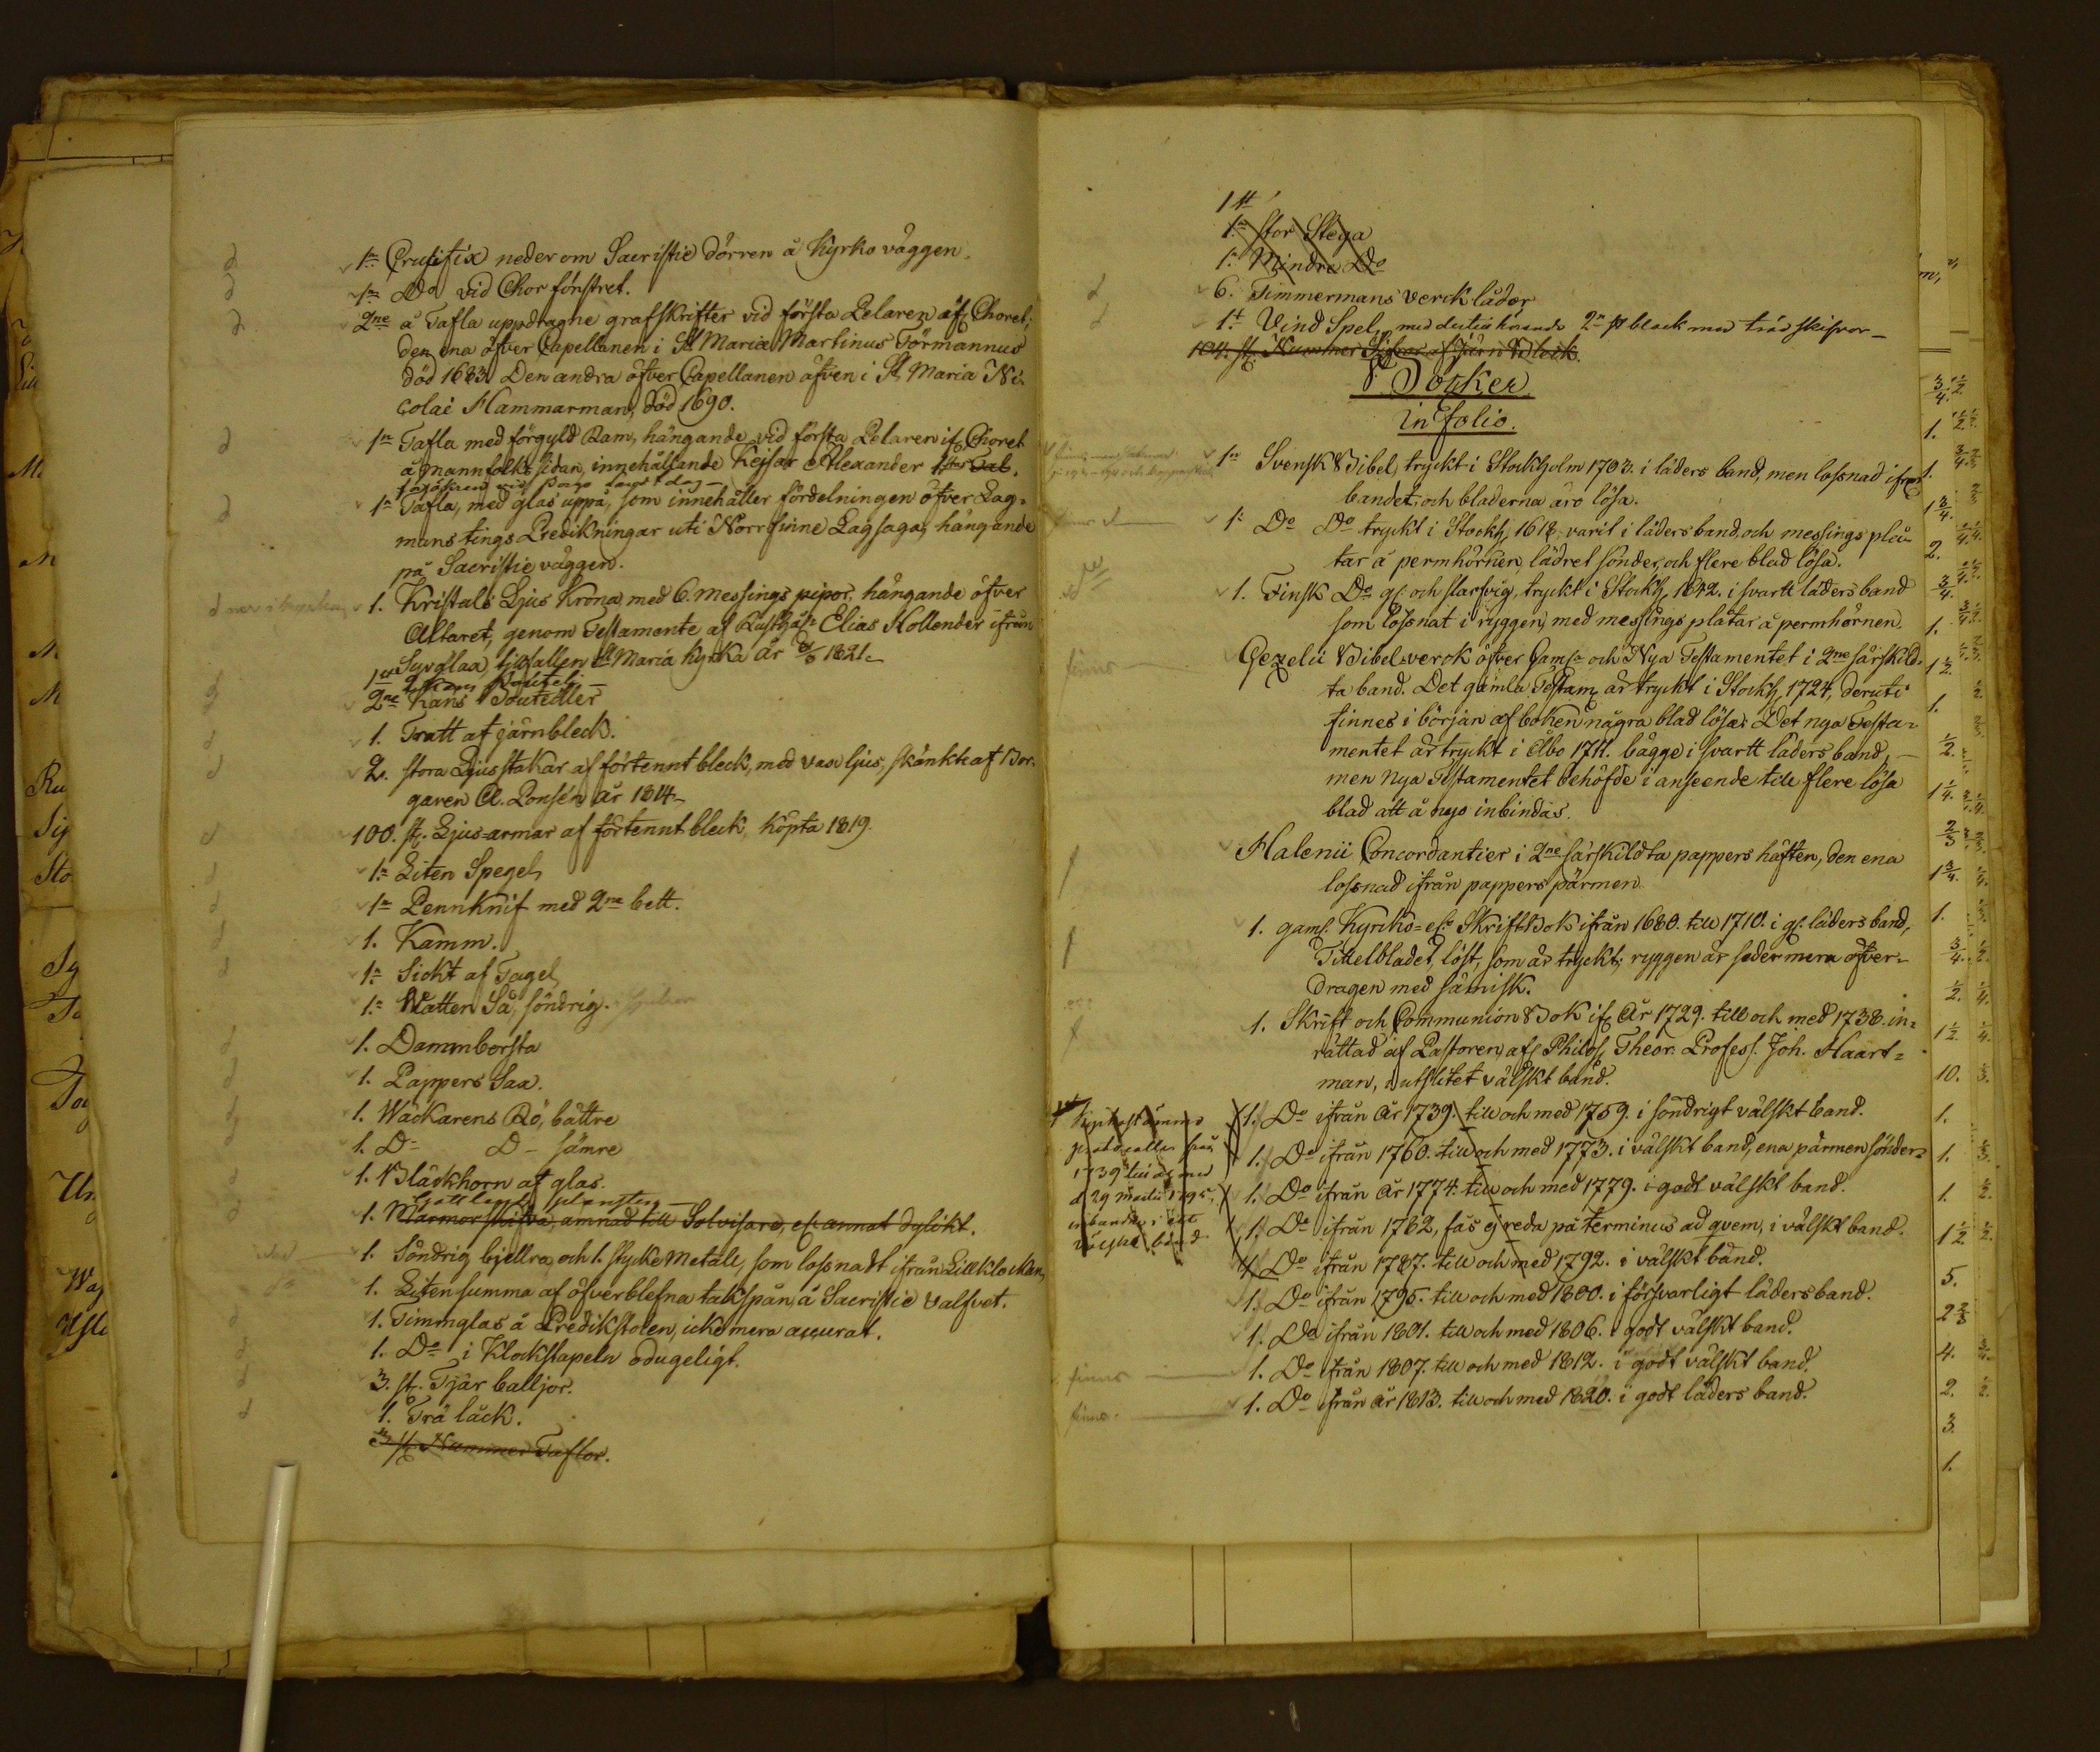 1n Crusifix neder om Sacristie dörren å Kyrko väggen.
1n Do vid Chor fönstret.
2ne å Tafla uppdragne grafskrifter vid första Pelaren af Choret;
den ena öfver Capellanen i St Mariæ Martinus Törmannus
död 1683. Den andra öfver Capellanen äfven i St Maria Ni-
colai Hammarman, död 1690.
1n Tafla med förgyld Ram, hängande vid första Pelaren if. Choret
å mannfolks sidan, innehållande Kejsar Alexander 1stes Tal.
1n Tafla, med glas uppå, som innehåller fördelningen öfver Lag-
mans tings Predikningar uti Norrfinne Lagsaga, hängande
på Sacristie väggen.
1. Kristals Ljus Krona med 6. messings pipor, hängande öfver
Altaret, genom Testamente af Elias Kollender ifrån
tilfallen St Maria Kyrka år 1821.
2ne Kans Boutedller
1. Tratt af järnbleck.
2. stora Ljusstakar af förtennt bleck, med vax ljus, skänkte af Bor-
garen A. Ponsén år 1814.
100. st. Ljus-armar af förtennt bleck, köpta 1819.
1n Liten Spegel
1n Pennknif med 2ne bett.
1. Kamm.
1n Sickt af Tagel
1n Watten Så, söndrig.
1. Dammborsta
1. Pappers Sax.
1. Wäckarens Rö, bättre
1. D- D- sämre
1. Bläckhorn af glas.
1. Marmor skifva, ämnad till Solvisare, el. annat dylikt.
1. Söndrig bjellra, och 1. stycke Metall, som lossnadt ifrån Lillklockan
1. Liten summa af öfverblefna takspån, å Sacristie valfvet.
1. Timmglas å Predikstolen, icke mera accurat.
1. Do i Klockstapeln odugeligt.
3. st. Tjär balljor.
1. Trä läck.
3 st. Nummer Taflor.
1 tt
1n stor Stega
1n Mindre Do
6. Timmermans Verck låder
1t Vind Spel, med dertill hörande 2n st black med träd skifvor
104. st. Nummer Sifror af Järn Bleck.
Böcker
in folio.
1n Svensk Bibel, tryckt i Stockholm 1703. i läders band, men lossnad ifrån
bandet, och bladerna äro lösa.
1n Do Do tryckt i Stockh, 1618, varit i läders band, och messings plå-
tar å permhörnen, lädret sönder, och flere blad lösa.
1. Finsk Do gl. och slarfvig, tryckt i Stockh, 1642. i svartt läders band
som lossnat i ryggen, med messings plåtar å permhörnen.
Gezelii Bibelverck öfver Gamla och Nya Testamentet i 2ne särskild-
ta band. Det gamla Testam. är tryckt i Stockh, 1724, deruti
finnes i början af boken några blad lösa: Det nya Testa-
mentet är tryckt i Åbo 1711. bägge i svartt läders band,
men nya Testamentet behöfde i anseende till flere lösa
blad att å nyo inbindas.
Halenii Concordantier i 2ne särskildta pappers häften, den ena
lossnad ifrån pappers pärmen
1. gaml. Kyrko- el. Skrift Bok ifrån 1680. till 1710. i gl. läders band,
Tittelbladet löst, som är tryckt; ryggen är sedermera öfver-
dragen med sämisk.
1. Skrift och Communion Bok if. År 1729. till och med 1738. in-
rättad af Pastoren, Philos. Theor. Profess. Joh. Haart-
man, i utslitet välskt band.
1. Do ifrån År 1739. till och med 1759. i söndrigt välskt band.
1. Do ifrån 1760. till och med 1773. i välskt band, ena pärmen sönder
1. Do ifrån År 1774. till och med 1779. i godt välskt band.
1. Do ifrån 1782, fås ej reda på terminus ad qvem, i välskt band.
1. Do ifrån 1787. till och med 1792. i välskt band.
1. Do ifrån 1795. till och med 1800. i försvarligt läders band.
1. Do ifrån 1801. till och med 1806. i godt välskt band.
1. Do ifrån 1807. till och med 1812. i godt välskt band.
1. Do ifrån År 1813. till och med 1820. i godt läders band.
finnes
1 Kyrkostämmo
protocoller från
1739 till och med
d 29 Martii 1795,
inbundne i ett
välskt band
finnes
finnes